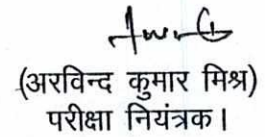 (अरविन्द कुमार मिश्र)
परीक्षा नियंत्रक।